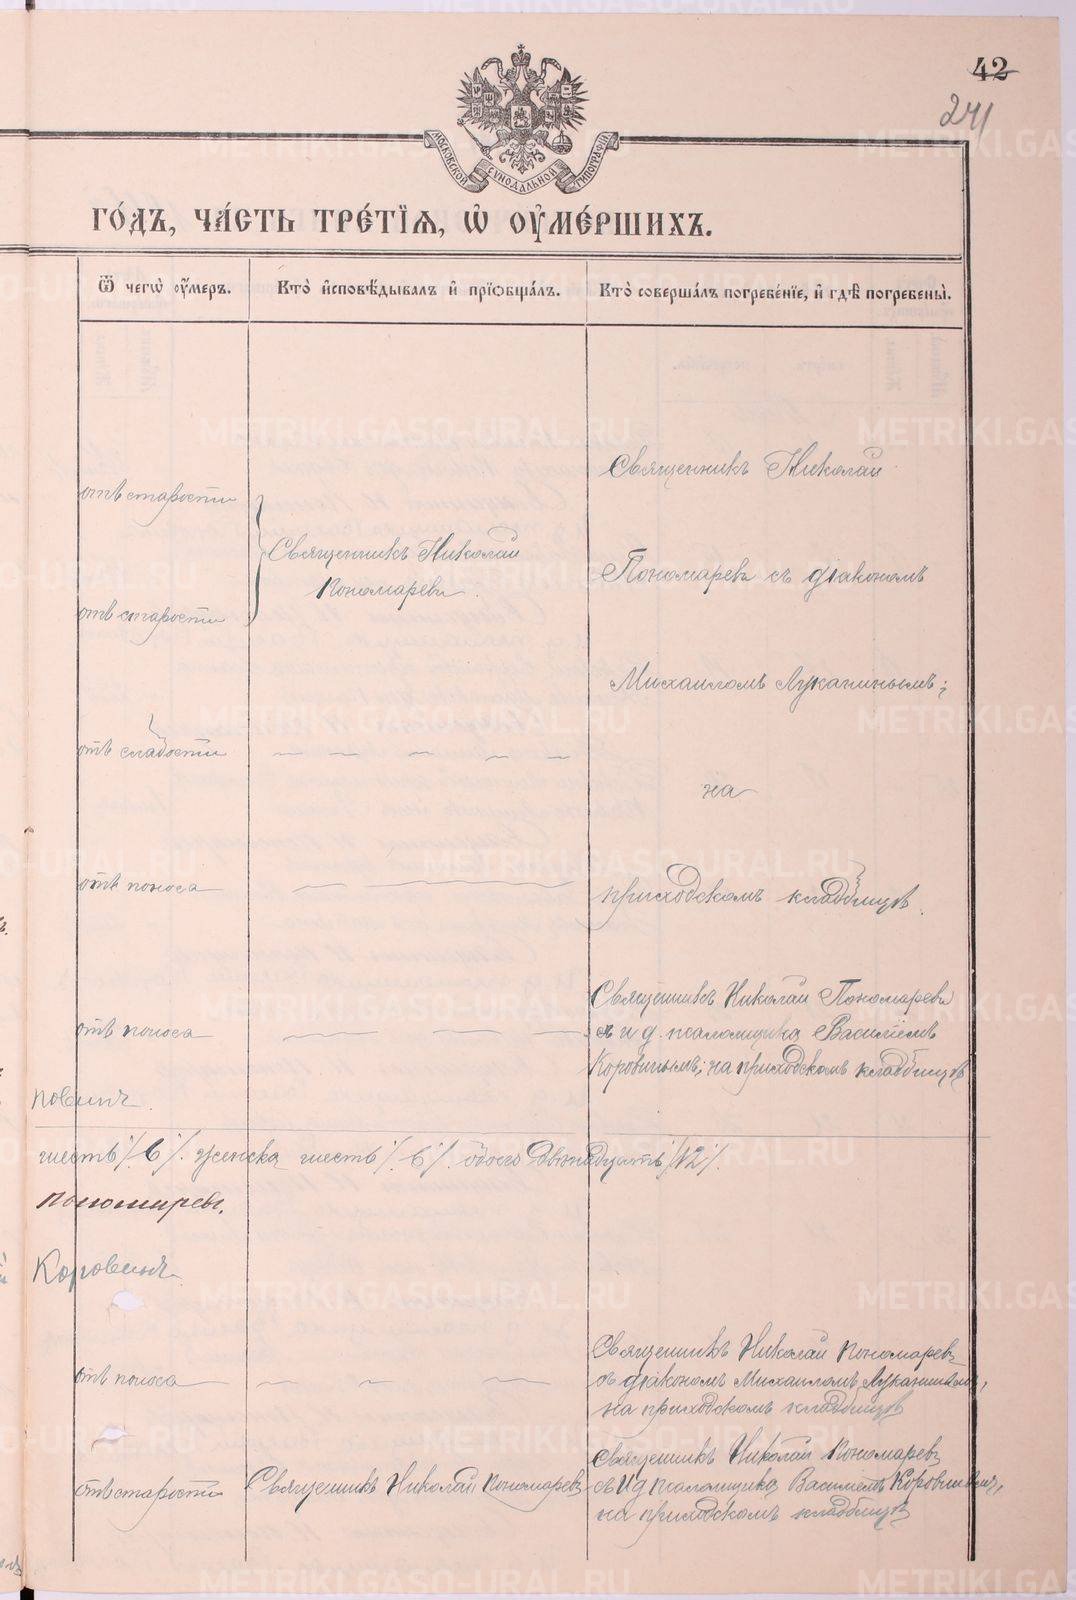 42
241
МОСКОВСКОЙ СѴНОДАЛЬНОЙ ТИПОГРАФІИ
ГО́ДЪ, ЧА́СТЬ ТРЕ́ТІѦ, Ѡ҆ ОУ҆МЕ́РШИХЪ.
Ѿ чегѡ̀ оу҆́меръ.
Кто̀ и҆сповѣ́дывалъ и҆ прїѻбща́лъ.
Кто̀ соверша́лъ погребе́нїе, и҆ гдѣ̀ погребены̀.
отъ старости
Священникъ Николай
Пономаревъ
Священникъ Николай
Пономаревъ съ діакономъ
отъ старости
Михаиломъ Луканинымъ;
отъ слабости
на
отъ поноса
приходскомъ кладбищѣ.
отъ поноса
Священникъ Николай Пономаревъ
съ и д. псаломщика Василіемъ
Коровинымъ; на приходскомъ кладбищѣ
шесть /6/. женска шесть /6/. обоего двѣнадцать /12/.
Пономаревъ.
Коровинъ
отъ поноса
Священникъ Николай Пономаревъ
съ діакономъ Михаиломъ Луканинымъ,
на приходскомъ кладбищѣ
отъ старости
Священникъ Николай Пономаревъ
Священникъ Николай Пономаревъ
съ И д псаломщика Василіемъ Коровинымъ,
на приходскомъ кладбищѣ
METRIKI.GASO-URAL.RU